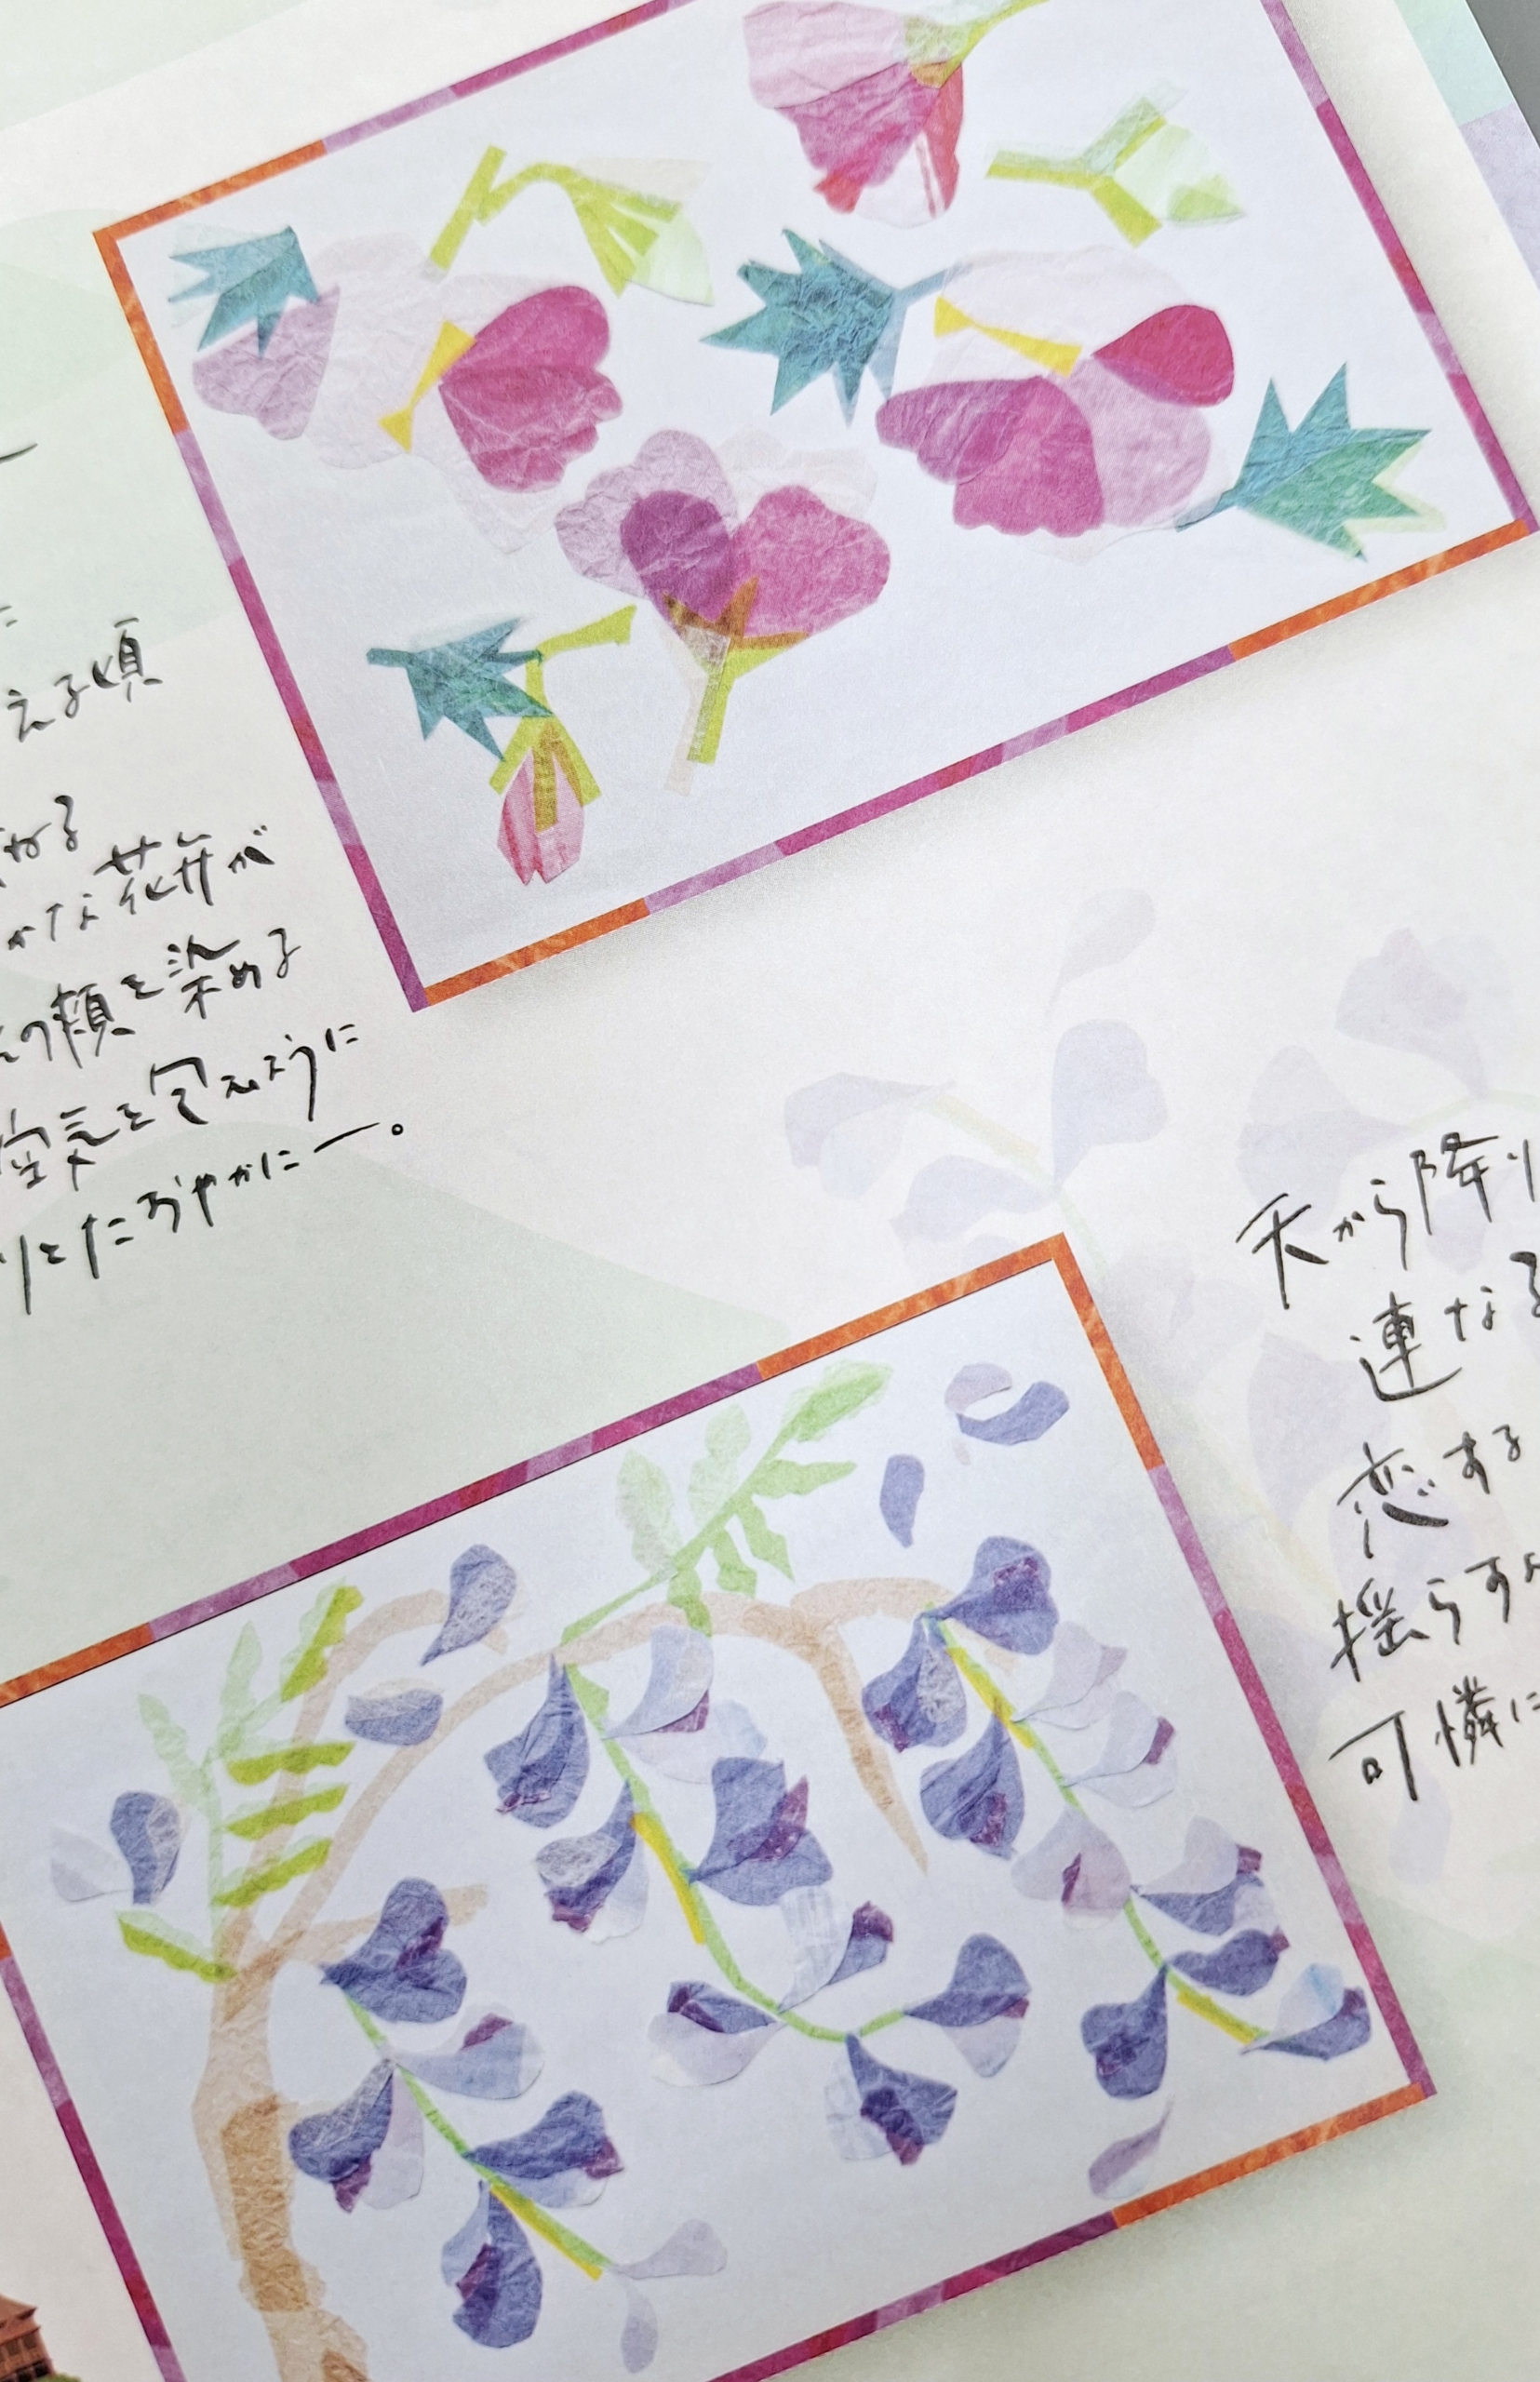 える頃
ねる
かな花弁が
の頬を染める
空気を含むように
りとたおやかに―。
天から降り
連なる
恋する
揺らすよ
可憐に